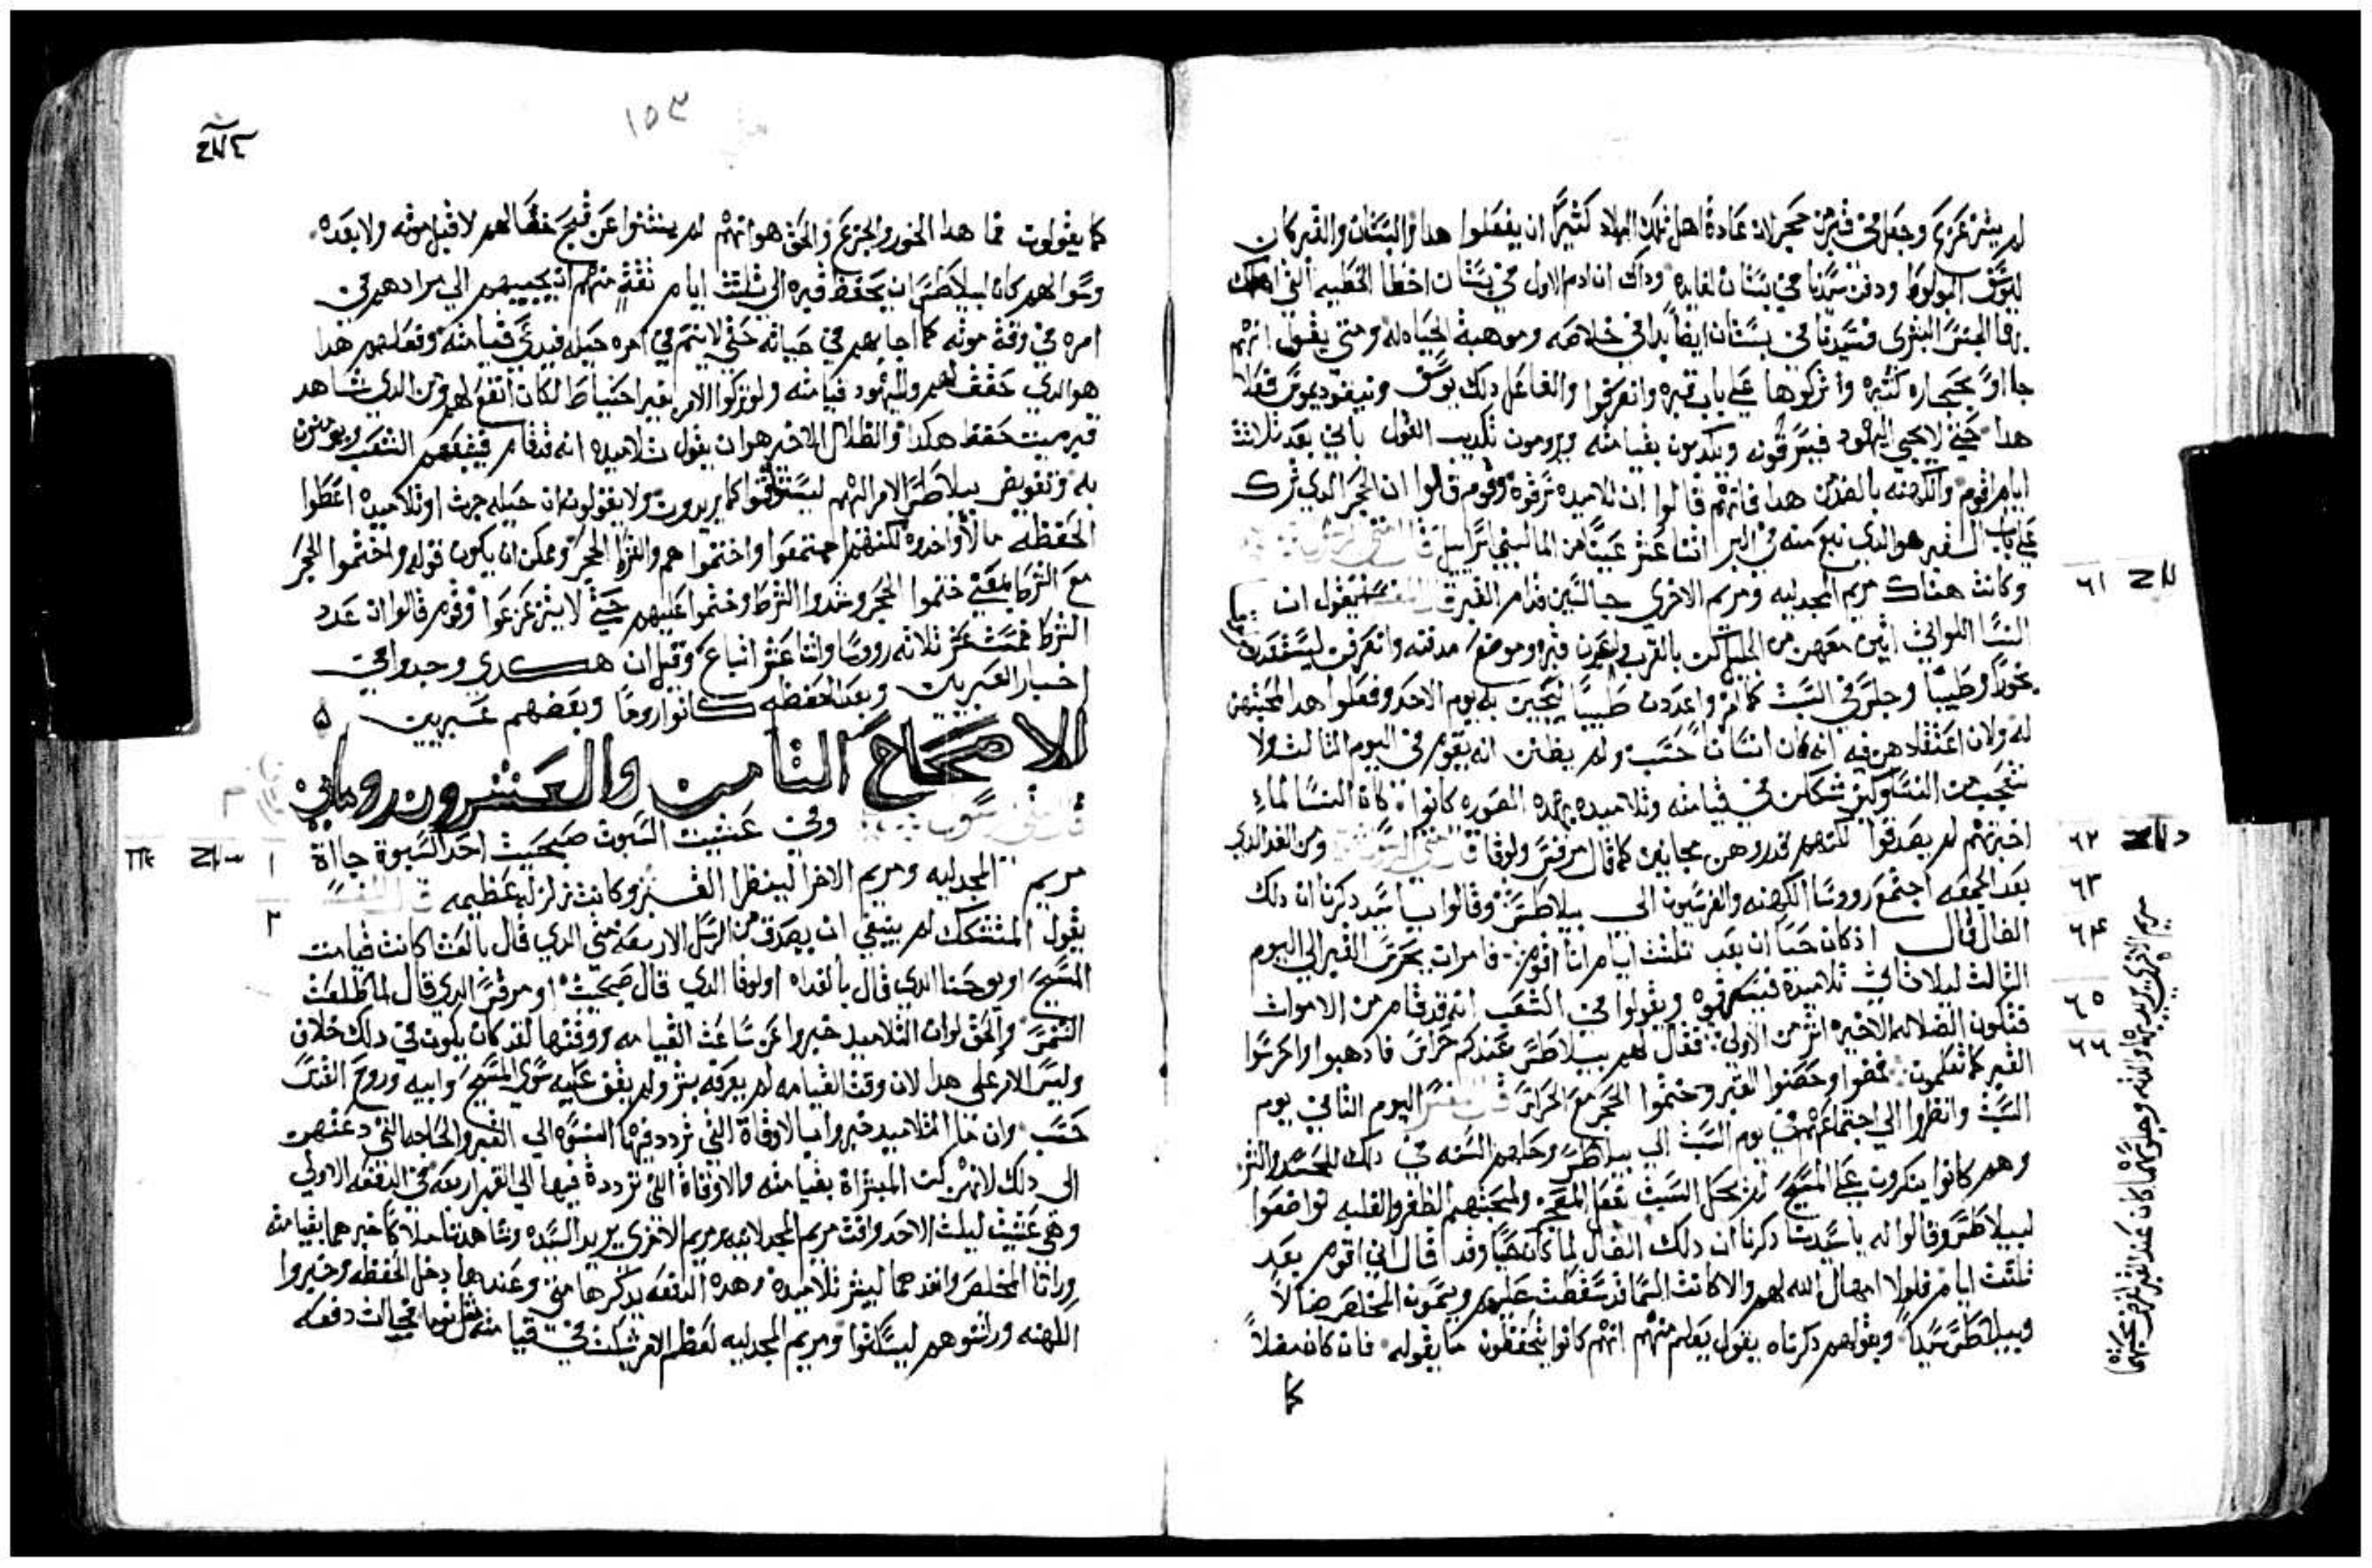 لم يتزعزع وجعل في قبر من حجر لان عادة اهل تلك البلاد كثيرًا ان يفعلوا هدا والبستان والقبر كان
ليوسف المولوط ودفن سيدنا في بستان لغايه وداك ان ادم الاول في بستان اخطا الخطيه التي اهلك
بها الجنس البشري فسيدنا في بستان ايضاً بدا في خلاصه وموهبة الحياه له ومتي يقول انهم
جااوا بحجاره كثيره واتركوها علي باب قبره وانصرفوا والفاعل دلك يوسف ونيقوديموس فعلا
هدا حتي لا يجي اليهود فيسرقونه ويكدبون بقيامته ويرومون تكديب القول باني بعد ثلاثة
ايام اقوم والكهنه بالضد من هدا فانهم قالوا ان تلاميده سرقوه وقوم قالوا ان الحجر الدي ترك
علي باب القبر هو الدي نبع منه في البر اتنا عشر عينًا من الما لبني اسراييل قال متي الرسول
وكانت هناك مريم المجدليه ومريم الاخري جالستين قدام القبر قال المفسر يقول ان
النسا اللواتي اتين معهن من الجليل كن بالقرب وابصرن قبره وموضع مدفنه وانصرفن ليستعددن
بخورًا وطيبًا وجلسن في السبت كما امر واعددن طيبًا ليجين به يوم الاحد وفعلوا هدا لمحبتهن
له ولان اعتقادهن فيه انه كان انسانًا حسب ولم يظنن انه يقوم في اليوم التالت ولا
نتعجب من النسا كيف شككن في قيامته وتلاميده بهده الصوره كانوا فكان النسا لما
اخبرنهم لم يصدقوا لكنهم قدروهن مجانين كما قال مرقس ولوقا قال متي الرسول ومن الغد الدي
بعد الجمعه اجتمع رووسا الكهنه والفريسيون الي بيلاطس وقالوا يا سيد دكرنا ان دلك
الضال قال اذ كان حيًا ان بعد تلتت ايام انا اقوم فامر ان يحرس القبر الي اليوم
التالت ليلا ياتي تلاميدة فيسرقوه ويقولوا في الشعب انه قد قام من الاموات
فتكون الضلاله الاخيره اشر من الاولي فقال لهم بيلاطس عندكم حراس فادهبوا واحرسوا
القبر كما تعلمون فمضوا وحصنوا القبر وختموا الحجر مع الحراس قال المفسر اليوم التاني يوم
السبت وانظروا الي اجتماعهم يوم السبت الي بيلاطس وحملهم السنه في دلك للحسد والشر
وهم كانوا ينكرون علي المسيح انه يحل السبت بفعل المعجز ولمحبتهم الظفر والغلبه تواضعوا
لبيلاطس وقالوا له يا سيدنا دكرنا ان دلك الضال لما كان حيًا وقد قال اني اقوم بعد
تلتت ايام فلولا امهال الله لهم والا كانت السما قد سقطت عليهم ويسمون المخلص ضالاً
وبيلاطس سيداً وبقولهم دكرناه يقول يعلم منهم انهم كانوا يتحفظون ما يقوله فان كان مضلاً
كا
٦١
٦٢
٦٣
٦٤
٦٥
٦٦
١٥٣
كما يقولون فما هدا الخور والجزع والحق هو انهم لم ينتنوا عن قبح فعالهم لا قبل موته ولا بعده
وسوالهم كان لبيلاطس ان يحفظ قبره الي تلتت ايام تقة منهم ان يجيبهم الي مرادهم في
امره في وقة موته كما اجابهم في حياته حتي لا يتم في امره حيله فيدعي قيامته وفعلهم هدا
هو الدي حقق لهم ولليهود قيامته ولو تركوا الامر بغير احتياط لكان انفع لهم ومن الدي شاهد
قبر ميت حفظ هكدا والظلال الاخير هو ان يقول تلاميده انه قد قام فيتبعهم الشعب ويومنون
به وتفويض بيلاطس الامر اليهم ليستوتقوا كما يريدون ولا يقولون ان حيله جرت او تلاميده اعطوا
الحفظه مالاً واخدوه لكنهم اجتمعوا واختموا هم والشركا الحجر وممكن ان يكون قوله واختموا الحجر
مع الشركا بمعني ختموا الحجر وشدوا الشرط وختموا عليهم حتي لا يتزعزعوا وقوم قالوا ان عدد
الشركا خمست عشر تلاته رووسا واتنا عشر اتباع وقيل ان هكدي وجدوا في
اخبار العبريين وبعد الحفظه كانوا رومًا وبعضهم عبريين
الاصحاح التامن والعشرون روماني
قال متي الرسول وفي عشيت السبوت صبحيت احد السبوة جااة
مريم المجدليه ومريم الاخرا لينظرا القبر وكانت زلزله عظيمه قال المفسر
يقول المتشكك لم ينبغي ان يصدق من الرسل الاربعه متي الدي قال بالعشا كانت قيامت
المسيح او يوحنا الدي قال بالغداه او لوقا الدي قال صبحيت او مرقس الدي قال لما طلعت
الشمس والحق لو ان التلاميد خبروا عن ساعت القيامه ووقتها لقد كان يكون في دلك خلاف
وليس الامر علي هدا لان وقت القيامه لم يعرفه بشر ولم يقف عليه سوي المسيح وابيه وروح القدس
حسب وان ما التلاميد خبروا بالاوقاة التي تردد فيها النسوه الي القبر والحاجه التي دعتهن
الي دلك لانهن كن المبشراة بقيامته والاوقاة التي ترددة فيها الي القبر اربعه في الدفعه الاولي
وهي عشيت ليلت الاحد وافت مريم المجدلانيه ومريم الاخري يريد السيده وشاهدتا ملاكًا خبرهما بقيامته
وراتا المخلص وانفدهما ليبشر تلاميده وهده الدفعه يدكرها متي وعندها دخل الحفظه وخبروا
الكهنه ورشوهم ليسكتوا ومريم المجدليه لعظم الامر شكت في قيامته
١
٢